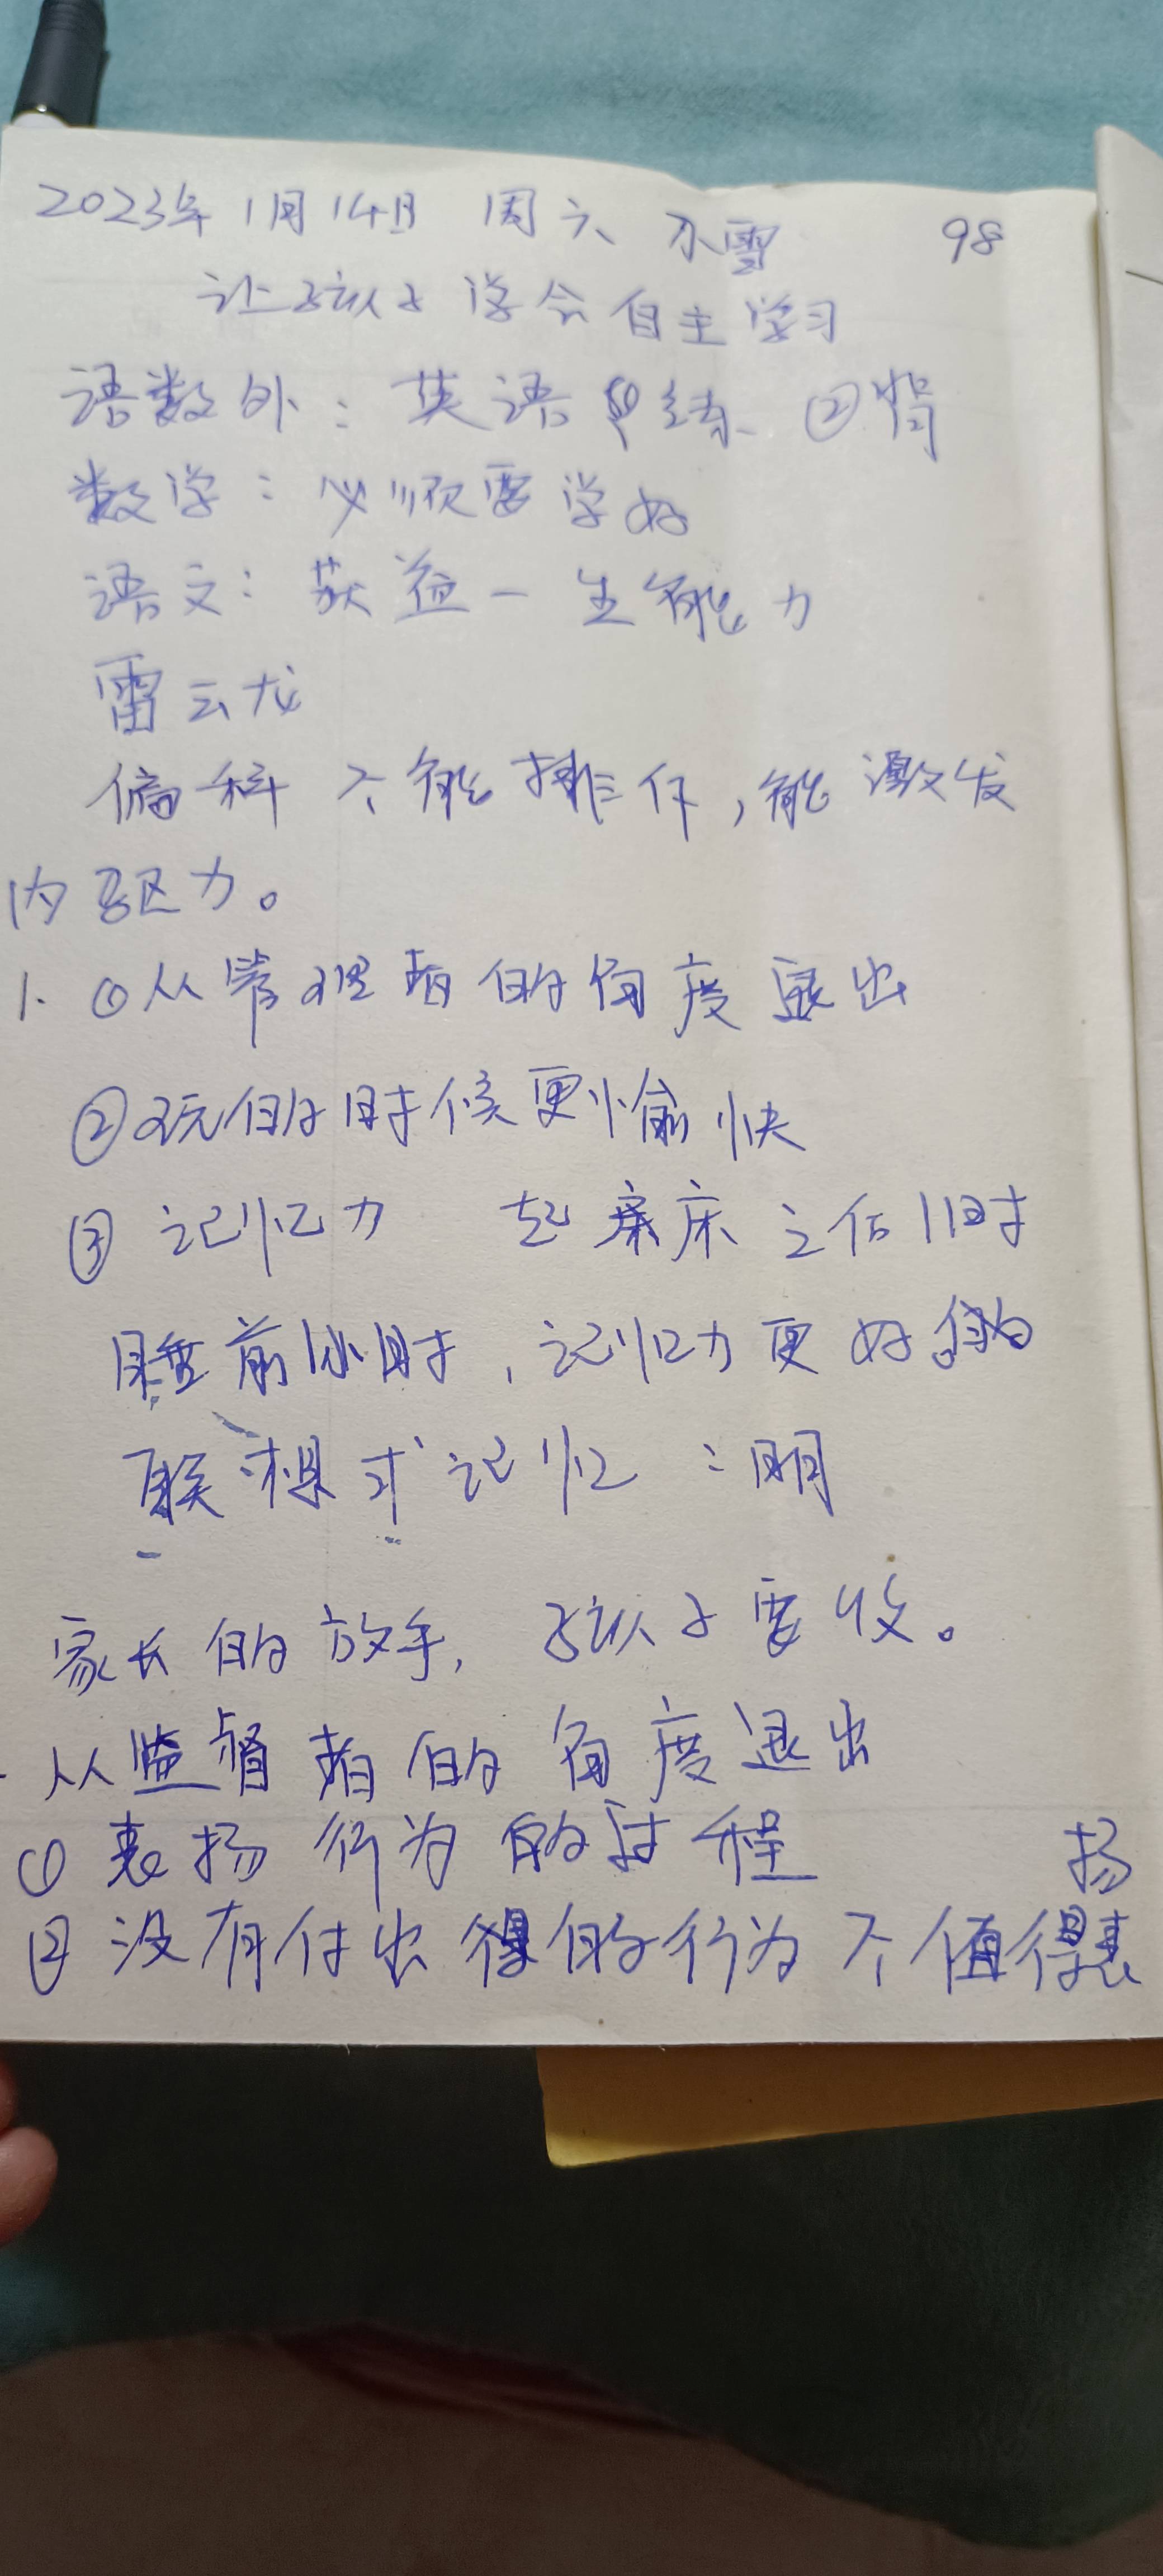 2023年1月14日 周六 小雪 98
让孩子学会自主学习
语数外: 英语①练 ②背
数学: 必须要学好
语文: 获益一生能力
雷云龙
偏科 不能排斥,能激发
内驱力。
1. ①从管理者的角度退出
②玩的时候更愉快
③ 记忆力 起床之后1时
睡前1小时,记忆力更好
联想式记忆:明
家长的放手,孩子要收。
从监督者的角度退出
①表扬行为的过程 扬
②没有付出得的行为不值得表